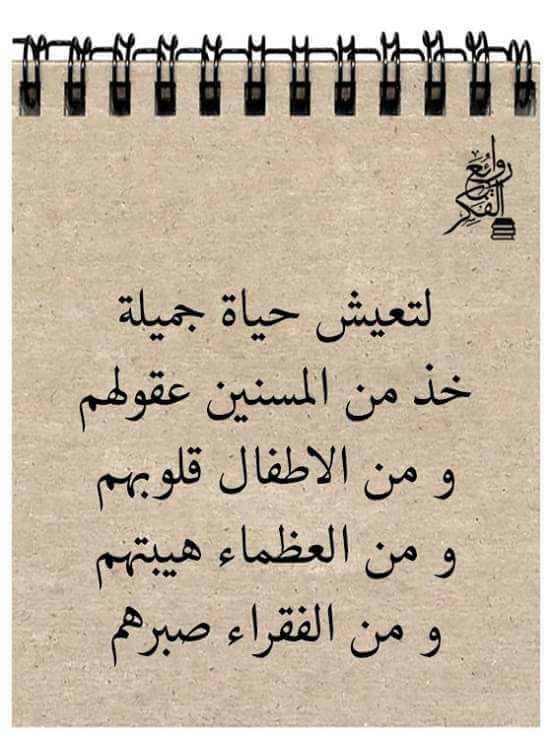 روائع الفكر
لتعيش حياة جميلة
خذ من المسنين عقولهم
و من الاطفال قلوبهم
و من العظماء هيبتهم
و من الفقراء صبرهم